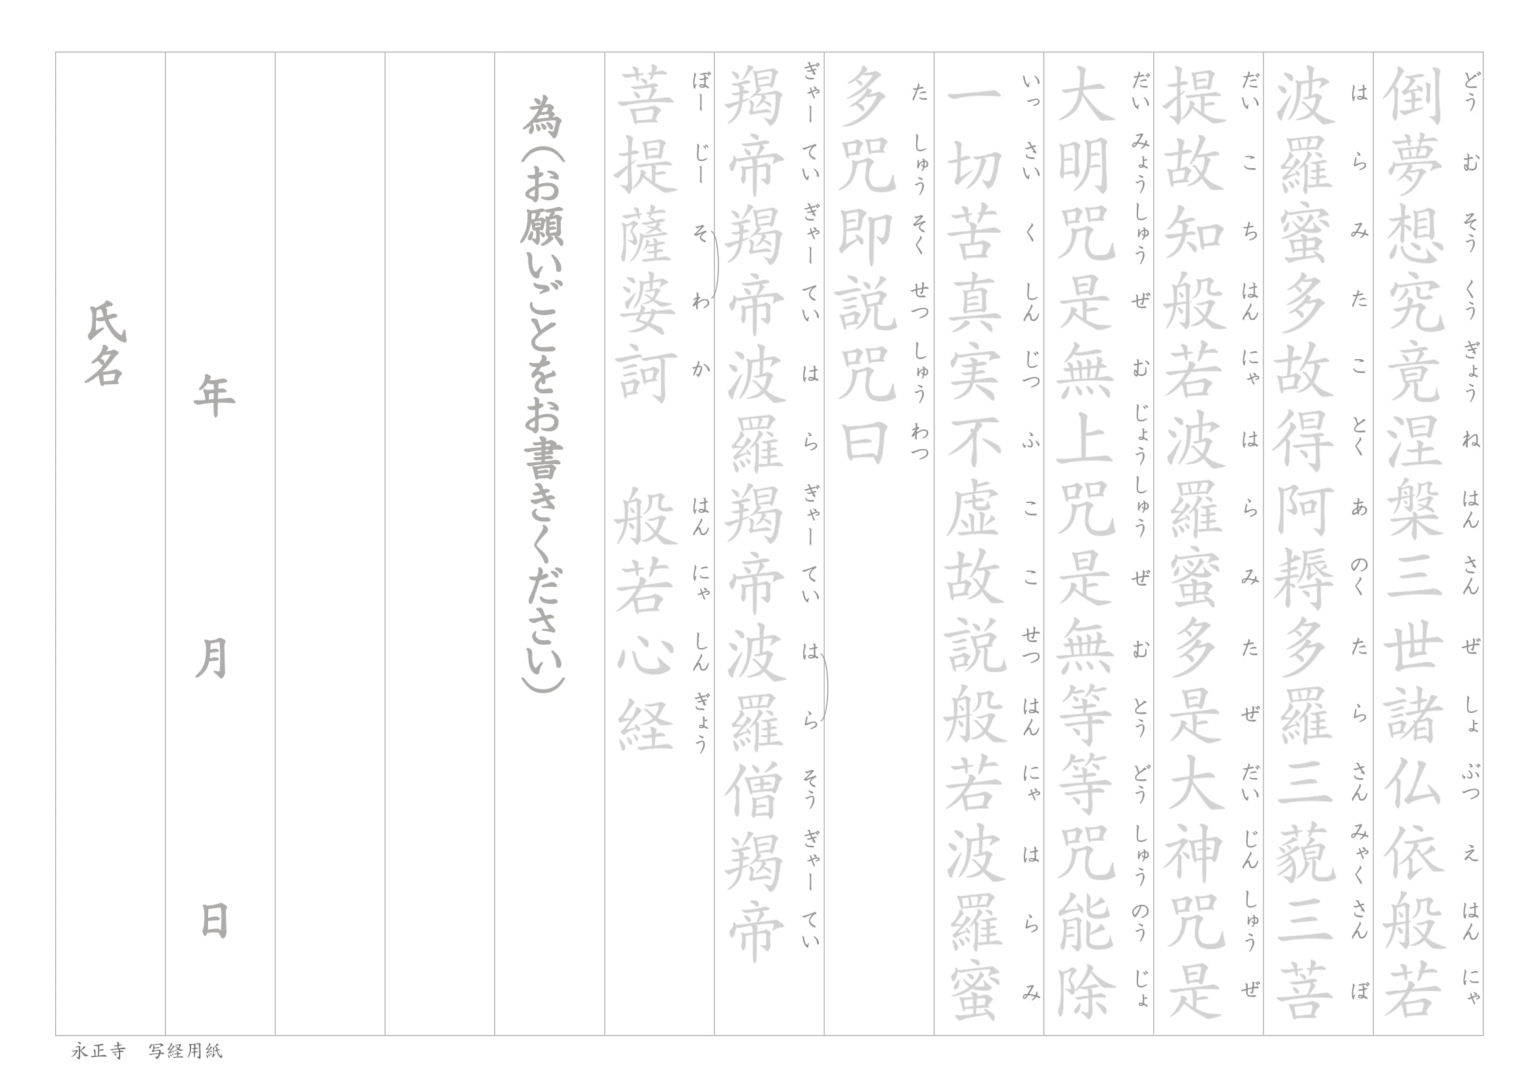 倒夢想究竟涅槃三世諸仏依般若
どう む そう くう ぎょう ね はん さん ぜ しょ ぶつ え はん にゃ
波羅蜜多故得阿耨多羅三藐三菩
は ら み た こ とく あ のく た ら さん みゃく さん ぼ
提故知般若波羅蜜多是大神咒是
だい こ ち はん にゃ は ら み た ぜ だい じん しゅう ぜ
大明咒是無上咒是無等等咒能除
だい みょう しゅう ぜ む じょう しゅう ぜ む とう どう しゅう のう じょ
一切苦真実不虚故説般若波羅蜜
いっ さい く しん じつ ふ こ こ せつ はん にゃ は ら み
多咒即説咒曰
た しゅう そく せつ しゅう わつ
羯帝羯帝波羅羯帝波羅僧羯帝
ぎゃー てい ぎゃー てい は ら ぎゃー てい は ら そう ぎゃー てい
菩提薩婆訶　般若心経
ぼー じー そ わ か　はん にゃ しん ぎょう
為（お願いごとをお書きください）
年　月　日
氏名
永正寺　写経用紙